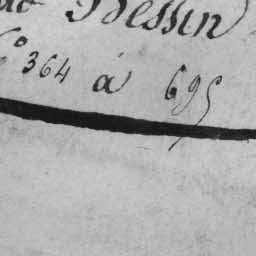 Dessin
N° 364 à 695